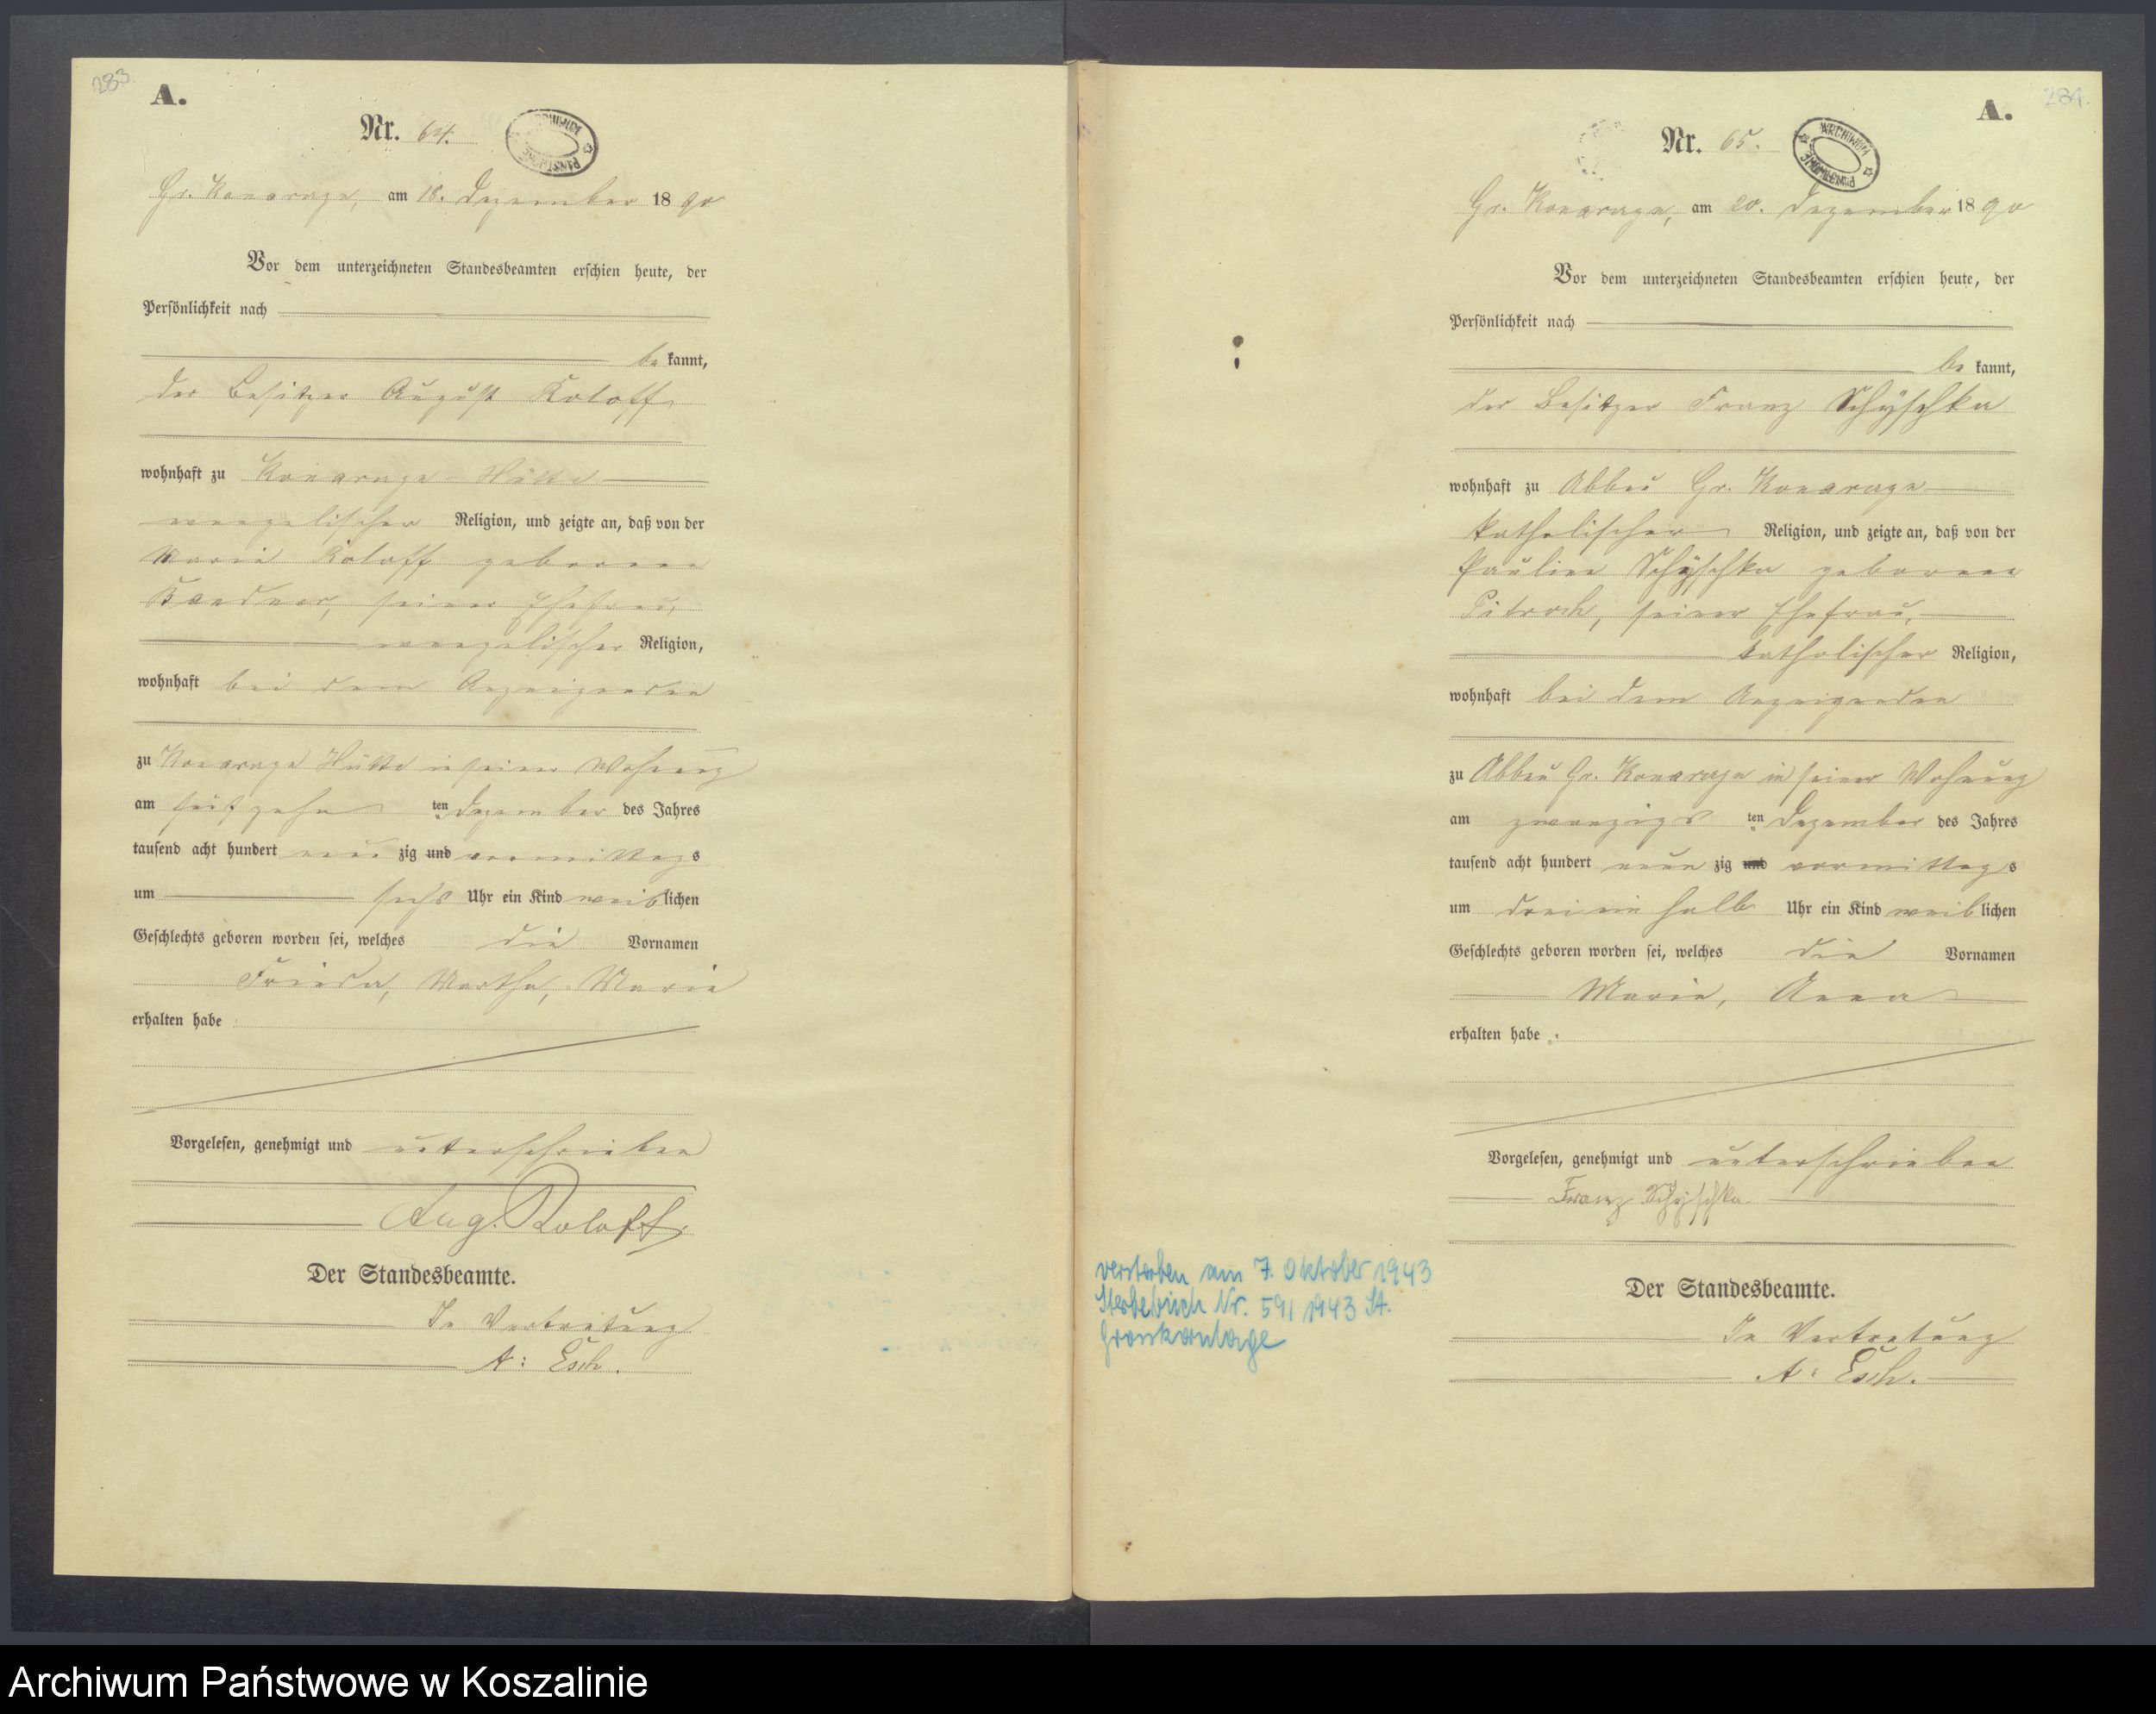 283.
A.
Nr. 64.
ARCHIWUM PAŃSTWOWE
Gr. Konarczyn, am 18. Dezember 1890
Vor dem unterzeichneten Standesbeamten erschien heute, der
Persönlichkeit nach
be kannt,
der Besitzer August Roloff
wohnhaft zu Hütte
evangelischer Religion, und zeigte an, daß von der
Marie Roloff geborene
seiner Ehefrau,
evangelischer Religion,
wohnhaft bei dem Anzeigenden
zu Hütte in seiner Wohnung
am ten Dezember des Jahres
tausend acht hundert neun zig und vormittags
um sechs Uhr ein Kind weiblichen
Geschlechts geboren worden sei, welches die Vornamen
Frieda, Martha, Marie
erhalten habe
Vorgelesen, genehmigt und unterschrieben
Aug. Roloff
Der Standesbeamte.
In Vertretung
A: Esch.
284.
A.
Nr. 65.
ARCHIWUM PAŃSTWOWE
Gr. Konarczyn, am 20. Dezember 1890
Vor dem unterzeichneten Standesbeamten erschien heute, der
Persönlichkeit nach
be kannt,
der Besitzer Franz Schÿschka
wohnhaft zu Abbau Gr.
katholischer Religion, und zeigte an, daß von der
Pauline Schÿschka geborene
seiner Ehefrau,
katholischer Religion,
wohnhaft bei dem Anzeigenden
zu Abbau Gr. in seiner Wohnung
am zwanzigs ten Dezember des Jahres
tausend acht hundert neun zig und vormittags
um drei ein halb Uhr ein Kind weiblichen
Geschlechts geboren worden sei, welches die Vornamen
Marie, Anna
erhalten habe
Vorgelesen, genehmigt und unterschrieben
Franz Schÿschka
verstorben am 7. Oktober 1943
Sterbebuch Nr. 59/1943 St.
Der Standesbeamte.
In Vertretung
A: Esch.
Archiwum Państwowe w Koszalinie